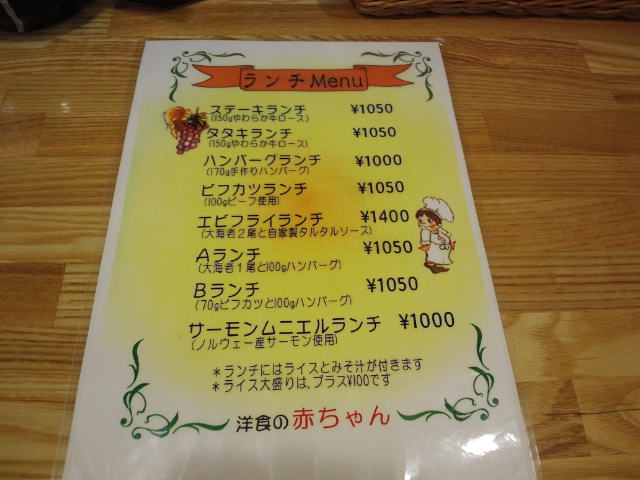 ランチMenu
ステーキランチ ¥1050
(150gやわらか牛ロース)
タタキランチ ¥1050
(150gやわらか牛ロース)
ハンバーグランチ ¥1000
(170g手作りハンバーグ)
ビフカツランチ ¥1050
(100gビーフ使用)
エビフライランチ ¥1400
(大海老2尾と自家製タルタルソース)
Aランチ ¥1050
(大海老1尾と100gハンバーグ)
Bランチ ¥1050
(70gビフカツと100gハンバーグ)
サーモンムニエルランチ ¥1000
(ノルウェー産サーモン使用)
*ランチにはライスとみそ汁が付きます
*ライス大盛りは、プラス¥100です
洋食の赤ちゃん